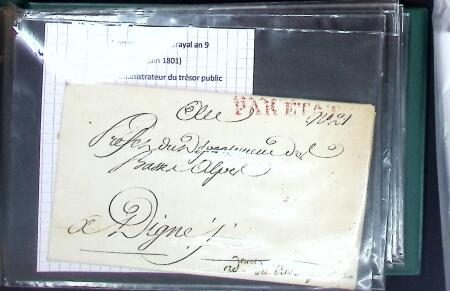 rayal an 9
juin 1801)
ministrateur du trésor public
Au
PAR ETAT
No 21
Préfet du Département des
Basses Alpes
a Digne